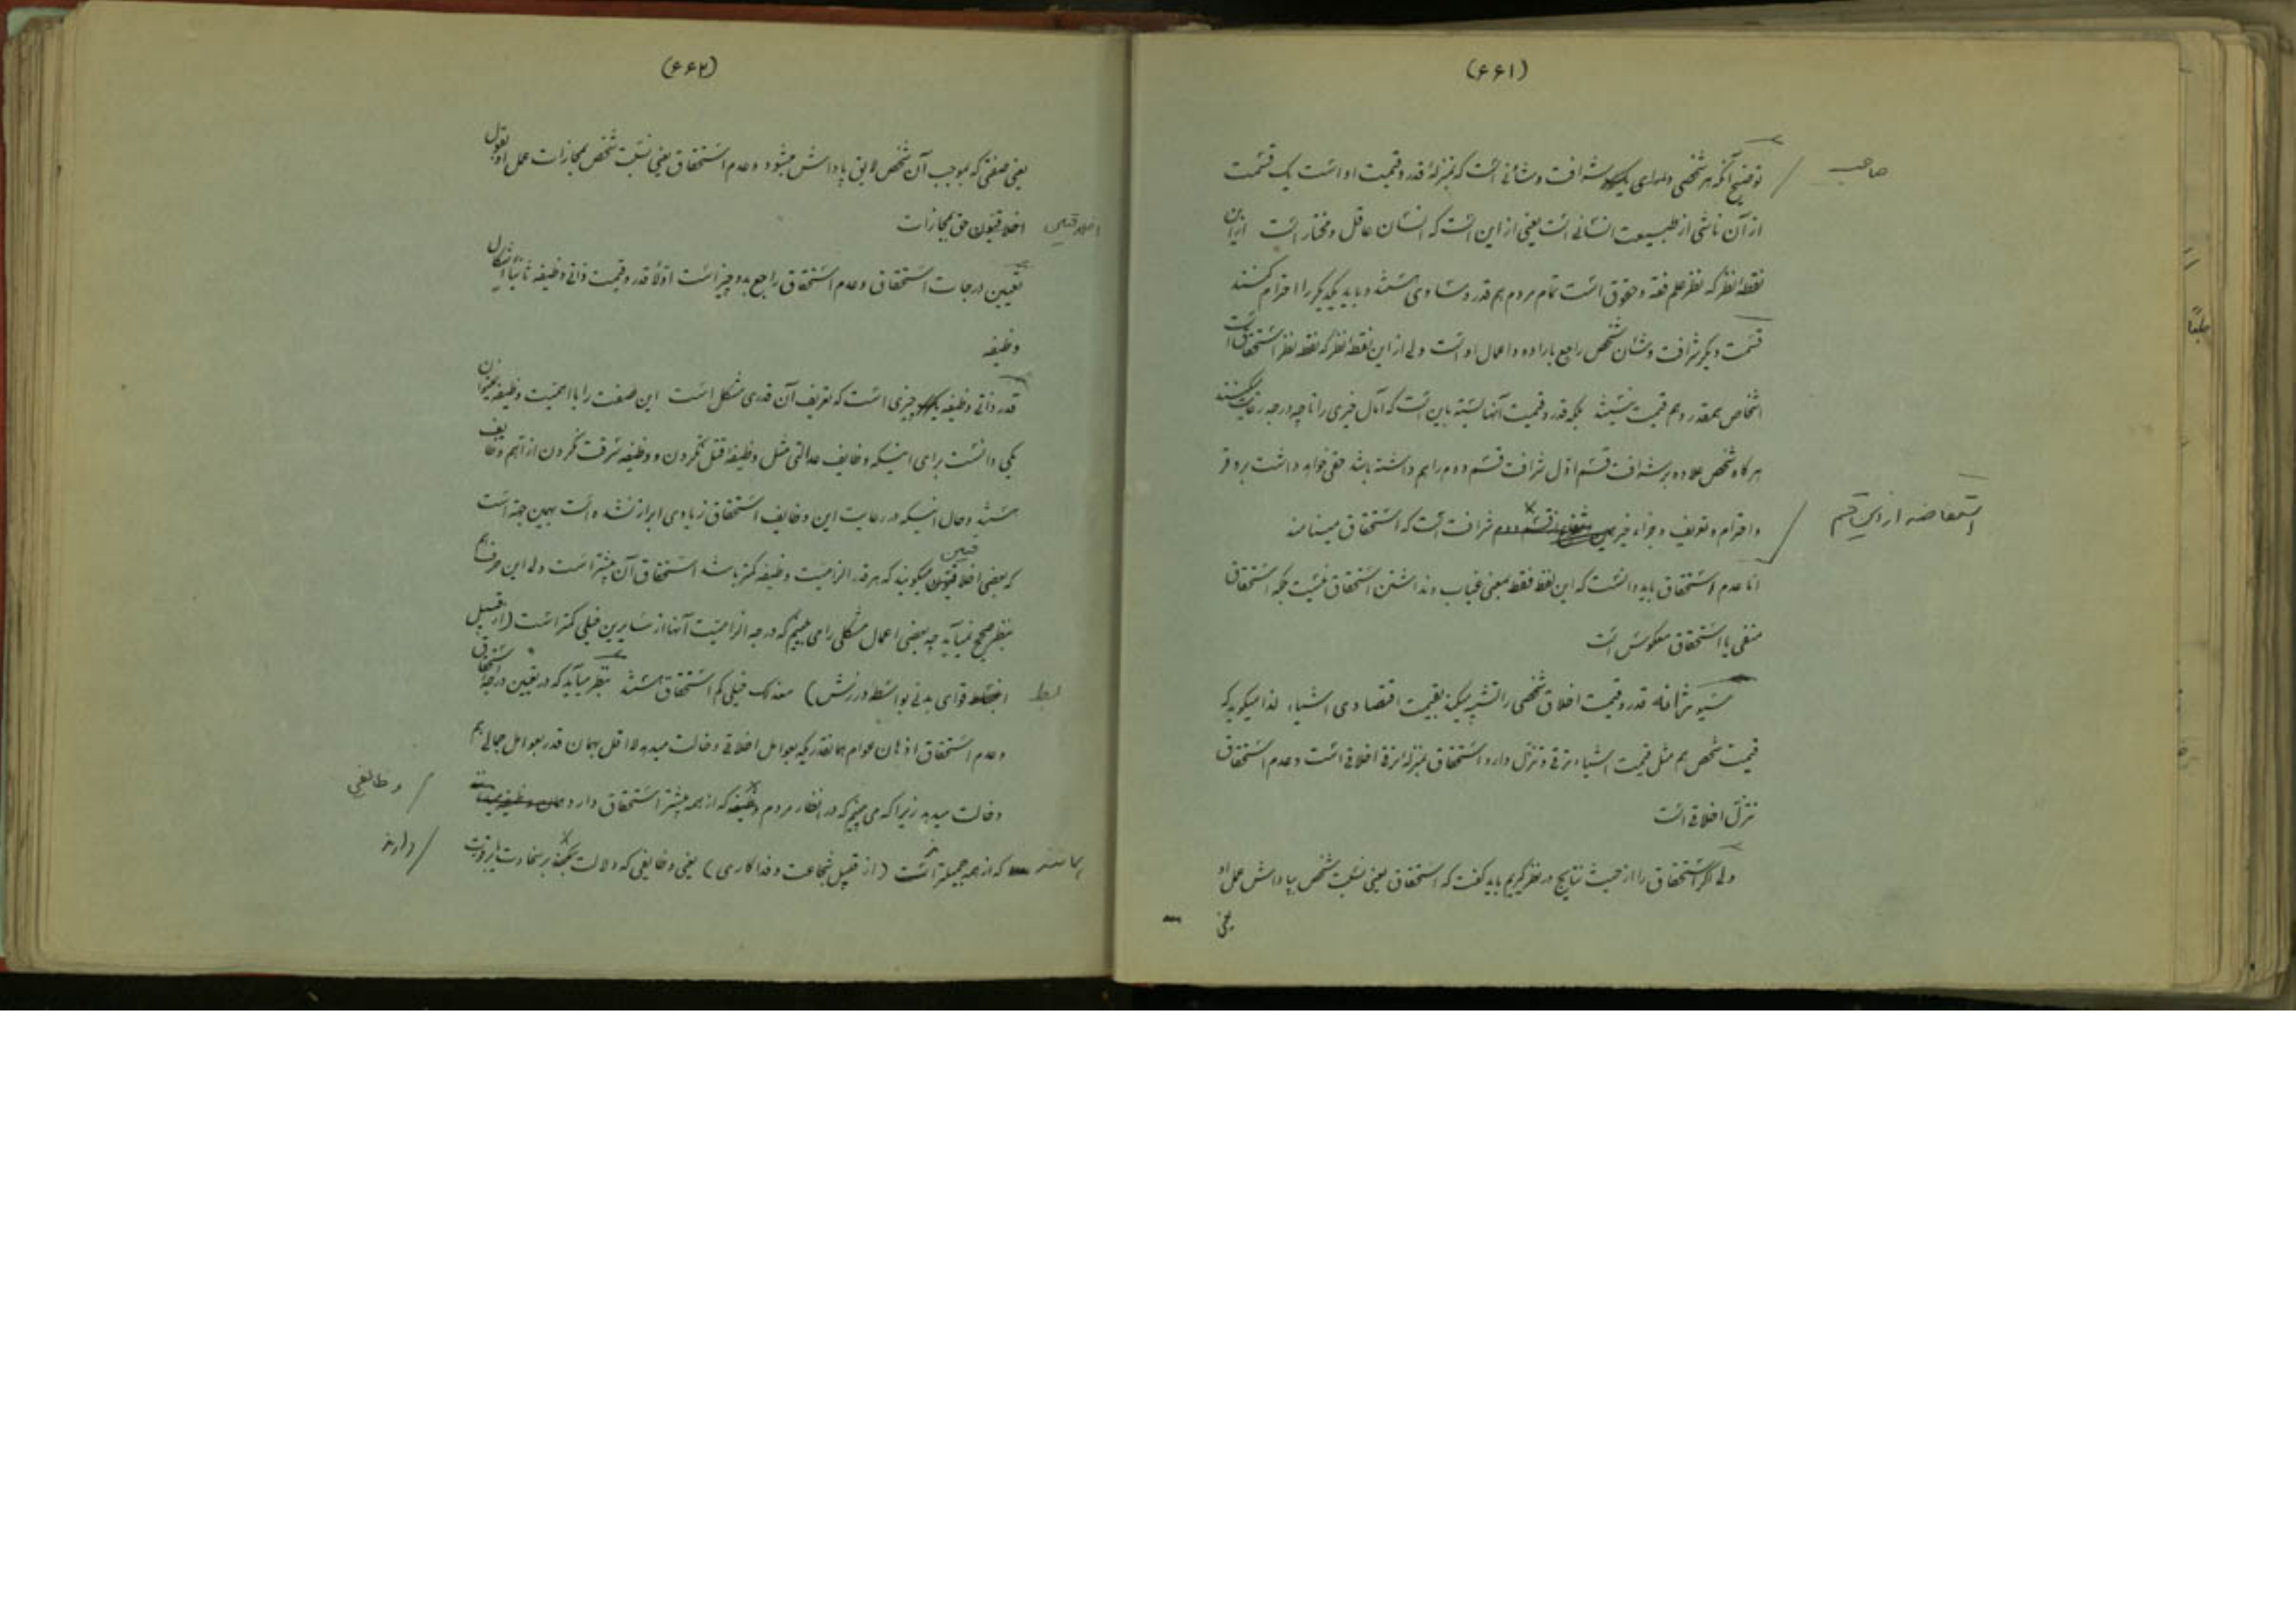 (۶۶۱)
توضیح آنکه هر شخصی دارای شرافت و شأنی است که بمنزلهٔ قدر و قیمت او است یک قسمت
صاحب
از آن ناشی از طبیعت انسانی است یعنی از این است که انسان عاقل و مختار است از این
نقطهٔ نظر که نظر علم فقه و حقوق است تمام مردم هم قدر و مساوی هستند و باید یکدیگر را احترام کنند
قسمت دیگر شرافت و شأن شخص راجع باراده و اعمال او است ولی از این نقطهٔ نظر که نقطه نظر استحقاق است
اشخاص همقدر و هم قیمت نیستند بلکه قدر و قیمت آنها بسته باین است که آمال خیری را تا چه درجه رعایت میکنند
هر گاه شخص علاوه بر شرافت قسم اول شرافت قسم دوم را هم داشته باشد حقی خواهد داشت بر وقر
و احترام و تعریف و جزاء خیر همین شرافت است که استحقاق مینامند
استفاضه از این قسم
اما عدم استحقاق باید دانست که این لفظ فقط بمعنی غیاب و نداشتن استحقاق نیست بلکه استحقاق
منفی یا استحقاق معکوس است
مسیو ژانه قدر و قیمت اخلاق شخصی را تشبیه میکند بقیمت اقتصادی اشیاء لذا میگوید که
قیمت شخص هم مثل قیمت اشیاء ترقی و تنزل دارد استحقاق بمنزلهٔ ترقی اخلاقی است و عدم استحقاق
تنزل اخلاقی است
ولی اگر استحقاق را از حیث نتایج در نظر گیریم باید گفت که استحقاق یعنی نسبت شخص بپاداش عمل او
یعنی
(۶۶۲)
یعنی صفتی که بموجب آن شخص لایق پاداش میشود و عدم استحقاق یعنی نسبت شخص بمجازات عمل او بقول
اخلاقیون حق مجازات
اخلاقیین
تعیین درجات استحقاق و عدم استحقاق راجع بدو چیز است اولاً قدر و قیمت ذاتی وظیفه ثانیاً اشکال
وظیفه
قدر ذاتی وظیفه چیزی است که تعریف آن قدری مشکل است این صفت را با اهمیت وظیفه نمیتوان
یکی دانست برای اینکه وظایف عدالتی مثل وظیفهٔ قتل نکردن و وظیفه سرقت نکردن از اهم وظایف
هستند و حال اینکه در رعایت این وظایف استحقاق زیادی ابراز نشده است بهمین جهة است
که بعضی اخلاقیون میگویند که هر قدر الزامیت وظیفه کمتر باشد استحقاق آن بیشتر است ولی این حرف هم
قیین
بنظر صحیح نمیآید چه بعضی اعمال مشکلی را می بینیم که درجه الزامیت آنها از سایرین خیلی کمتر است (از قبیل
قوای بدنی بواسطه ورزش) معذلک خیلی کم استحقاق هستند بنظر میآید که در تعیین درجهٔ استحقاق
بسط
و عدم استحقاق اذهان عوام همانقدریکه بعوامل اخلاقی دخالت میدهد لااقل بهمان قدر بعوامل جمالی هم
دخالت میدهد زیرا که می بینیم که در انظار مردم وظیفه که از همه بیشتر استحقاق دارد
وظائفی
که از همه جمیلتر است (از قبیل شجاعت و فداکاری) یعنی وظایفی که دلالت میکند بر سخاوت
دارند